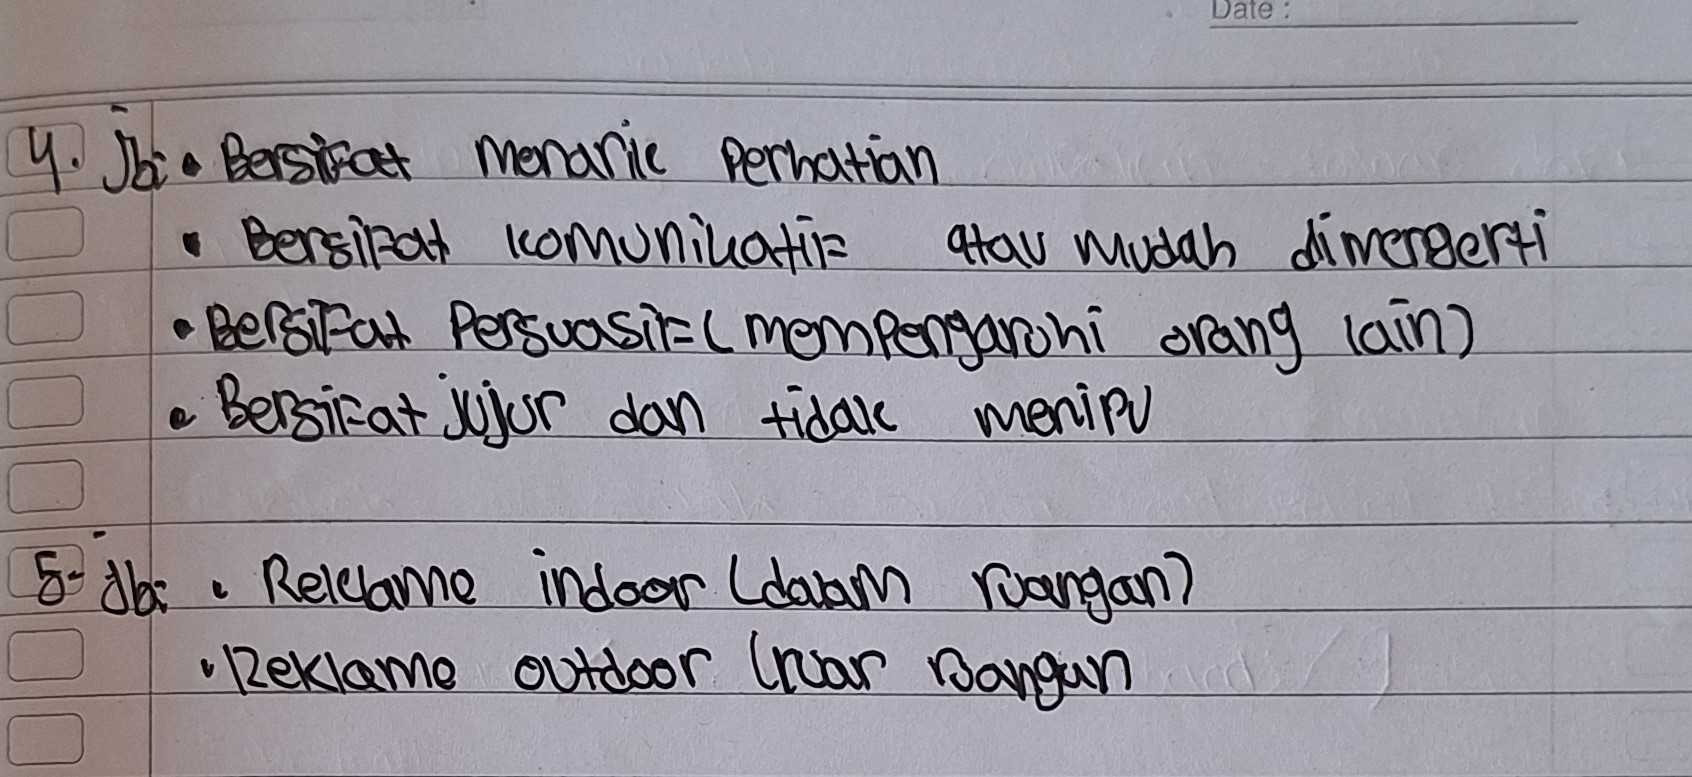 Date :
4. Jb: • Bersifat menarik Perhatian
• Bersifat komunikatif atau mudah dimengerti
• Bersifat Persuasif (mempengaruhi orang lain)
• Bersifat jujur dan tidak menipu
5. Jb: • Reklame indoor (dalam ruangan)
• Reklame outdoor (luar ruangan